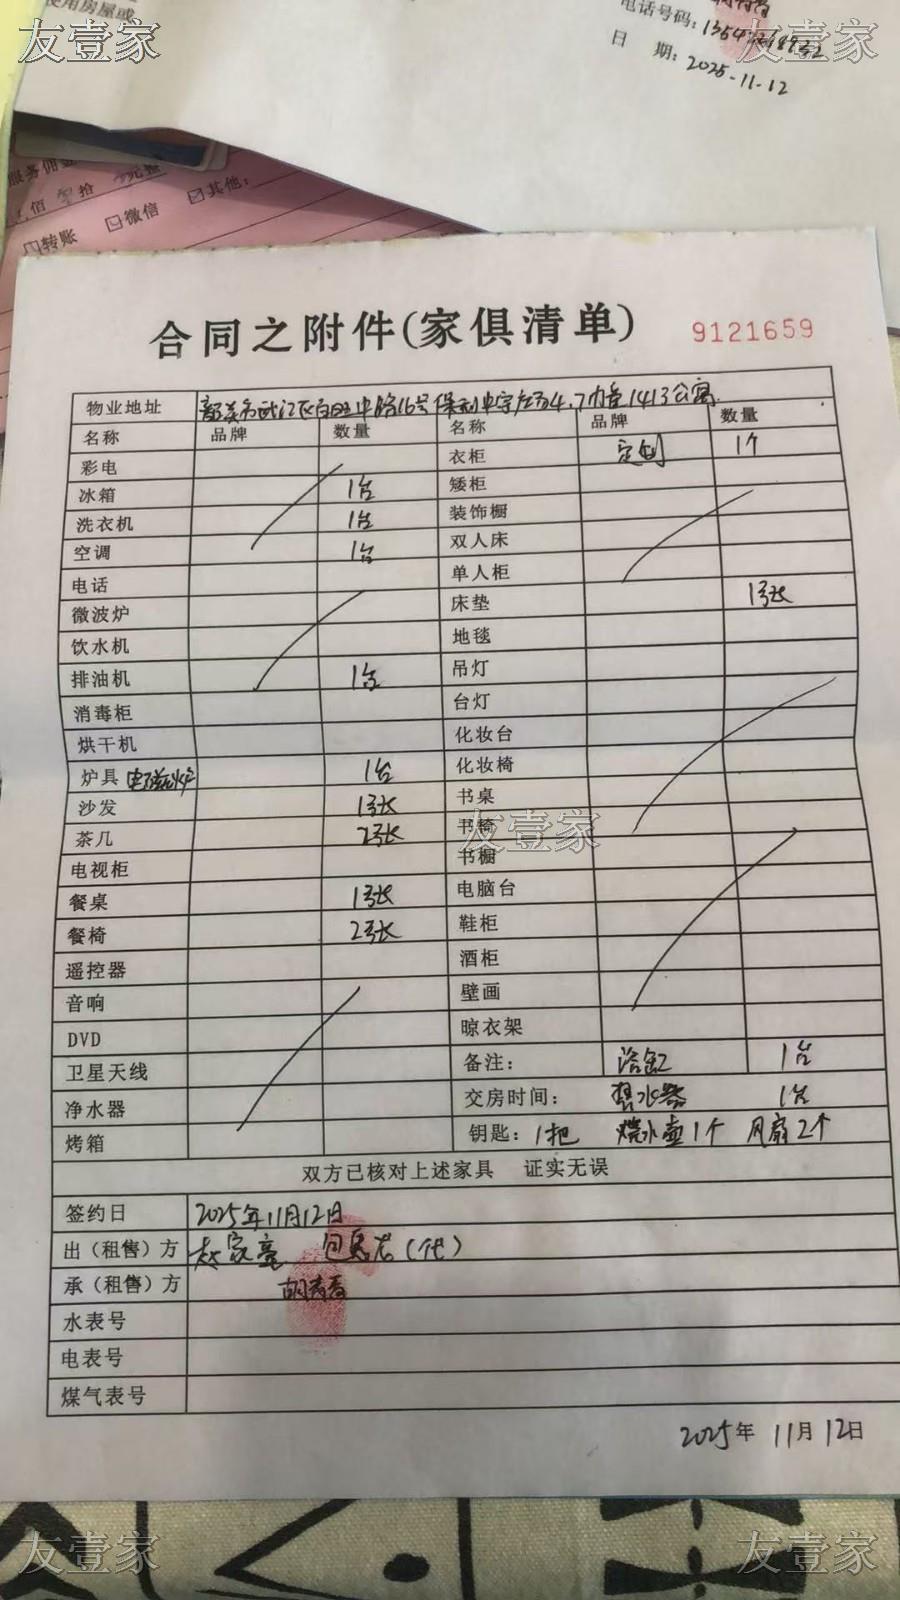 友壹家
友壹家
使用房屋或
电话号码:
日 期: 2025-11-12
服务佣金
佰 拾 元整
转账 微信 其他:
合同之附件(家俱清单) 9121659
物业地址 中路16号保利中宇广场4、7内卷1413公寓
名称 品牌 数量 名称 品牌 数量
彩电 衣柜 定制 1个
冰箱 1台 矮柜
洗衣机 1台 装饰橱
空调 1台 双人床
电话 单人柜
微波炉 床垫 1张
饮水机 地毯
排油机 1台 吊灯
消毒柜 台灯
烘干机 化妆台
炉具 电磁炉 1台 化妆椅
沙发 1张 书桌
茶几 2张 书椅
友壹家
电视柜 书橱
餐桌 1张 电脑台
餐椅 2张 鞋柜
遥控器 酒柜
音响 壁画
DVD 晾衣架
卫星天线 备注: 浴缸 1台
净水器 交房时间: 热水器 1台
烤箱 钥匙: 1把 烧水壶1个 风扇2个
双方已核对上述家具 证实无误
签约日 2025年11月12日
出(租售)方 赵家亮 (代)
承(租售)方
水表号
电表号
煤气表号
2025年 11月 12日
友壹家
友壹家